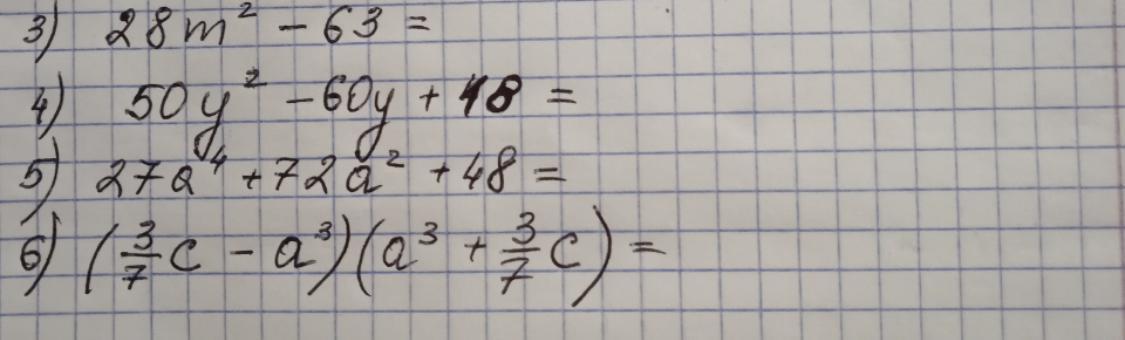 3) 28m² - 63 =
4) 50y² - 60y + 18 =
5) 27a⁴ + 72a² + 48 =
6) (3/7 c - a³)(a³ + 3/7 c) =